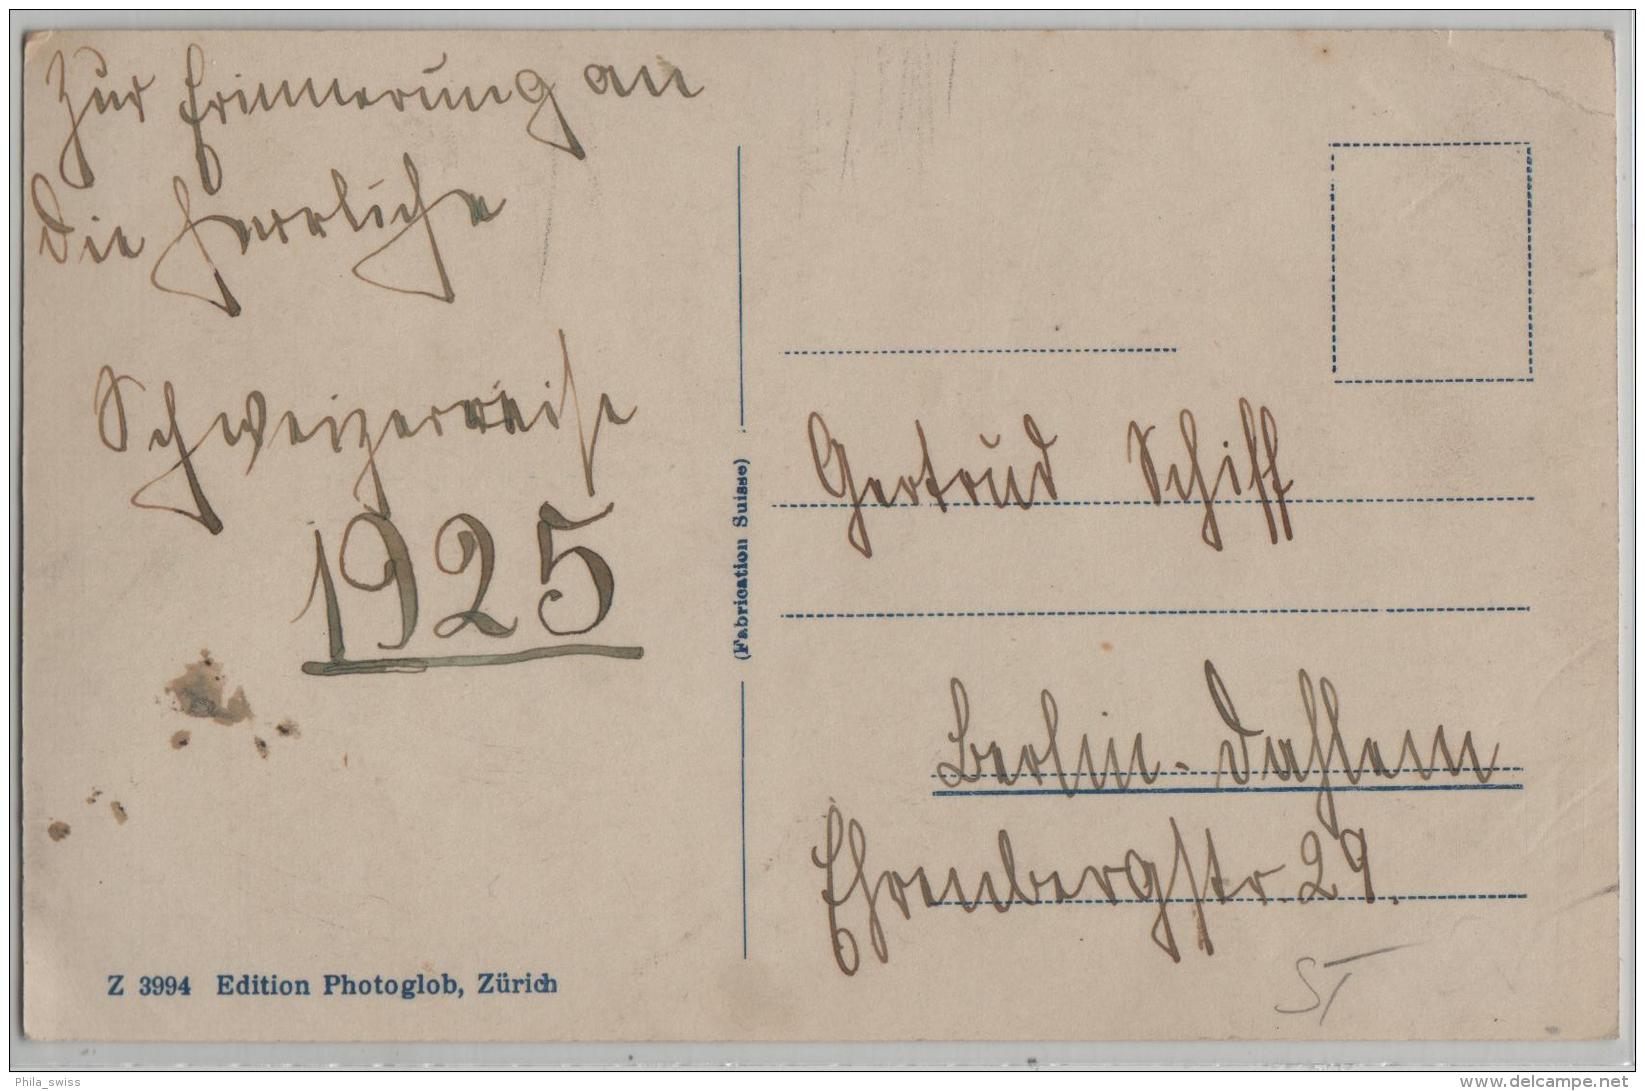 Zur Erinnerung an
die herrliche
Schweizerreise
1925
Z 3994 Edition Photoglob, Zürich
(Fabrication Suisse)
Gertrud Schiff
Berlin-Dahlem
Ehrenbergstr. 29.
ST
Phila_swiss
www.delcampe.net